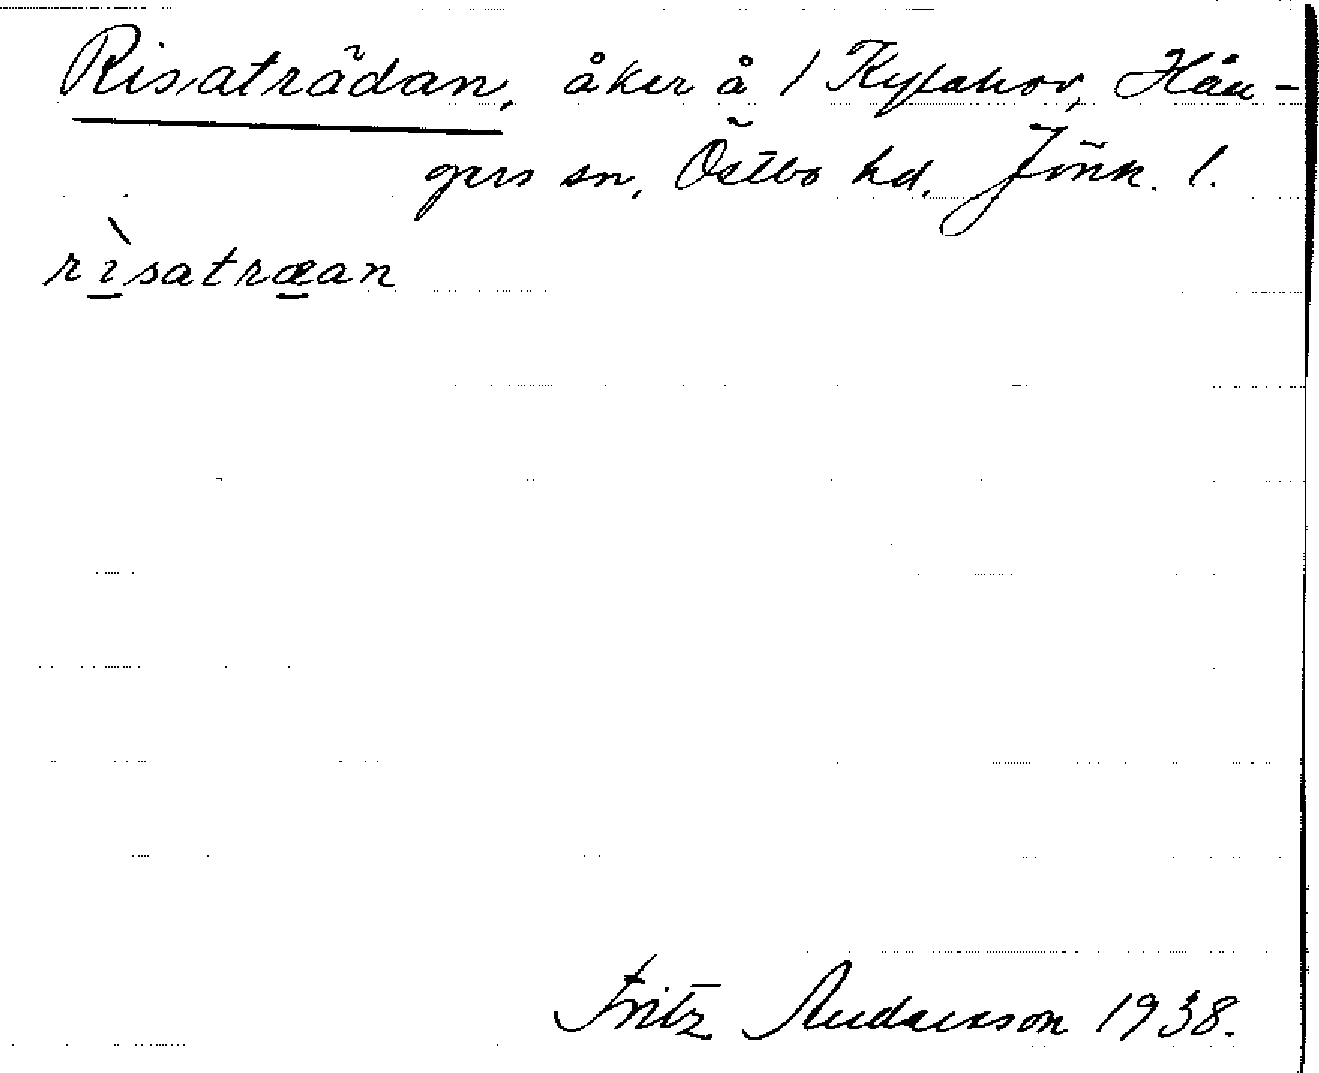 Risaträdan, åker å 1 Kypahov, Hån-
gers sn, Östbo hd, Jönk. l.
rìsatræan
Fritz Andersson 1938.